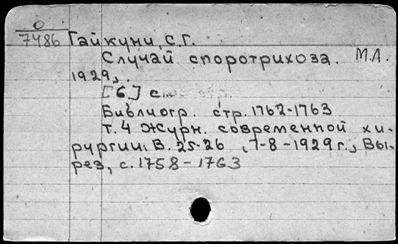 0
7486 Гайкуни, С.Г.
Случай споротрихоза. М.Л.
1929,.
[6] с.
Библиогр. стр. 1762-1763
Т. 4 Журн. современной хи-
рургии, В. 25-26, 7-8-1929 г., Вы-
рез, с. 1758-1763